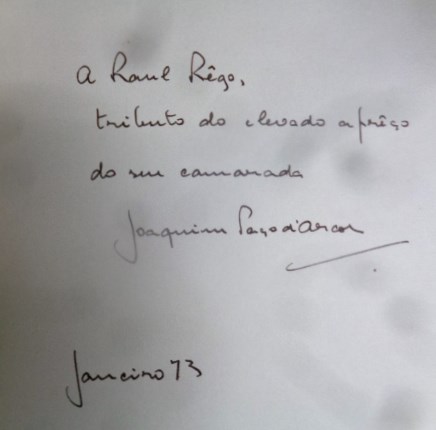 A Raul Rêgo,
tributo do elevado aprêço
do seu camarada
Joaquim Paço d'Arcos
Janeiro 73